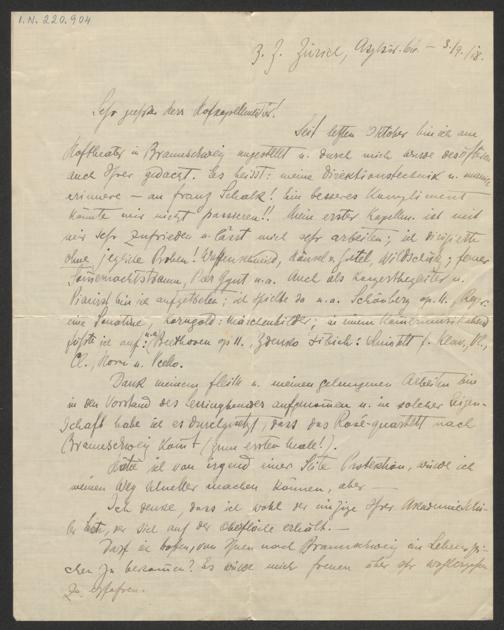 I.N. 220.904
z. Z. Zürich, – 3./9./18.
Sehr geehrter Herr Hofkapellmeister!
Seit letzten Oktober bin ich am
Hoftheater in Braunschweig angestellt u. durch mich wurde des öfteren
auch Ihrer gedacht. Es heisst: meine Direktionstechnik u. manier
erinnere – an Franz Schalk! Ein besseres Kompliment
könnte mir nicht passieren!! Mein erster Kapellm. ist mit
mir sehr zufrieden u. lässt mich sehr arbeiten; ich dirigierte
ohne jegliche Proben! Waffenschmied, Hänsel u. Gretel, Wildschütz; ferner
Sommernachtstraum, Peer Gynt u.a. Auch als Konzertbegleiter u.
Pianist bin ich aufgetreten; ich spielte so u. a. Schönberg op. 11., Reger:
eine Sonatine, Korngold: Märchenbilder; in einem Kammermusikabend
führte ich auf: (Beethoven op 11., Zdenko Fibich: Quintett f. Klav., Vl.,
Cl., Horn u. Cello.
Dank meinem Fleiße u. meinen gelungenen Arbeiten bin
in den Vorstand des aufgenommen u. in solcher Eigen-
schaft habe ich es durchgesetzt, dass das Rosé-quartett nach
Braunschweig kommt (zum ersten Male!).
Hätte ich von irgend einer Seite Protektion, würde ich
meinen Weg schneller machen können, aber —
Ich denke, dass ich wohl der einzige Ihrer Akademieschü-
ler bin, der sich auf der Oberfläche erhält. —
Darf ich hoffen, von Ihnen nach Braunschweig ein Lebenszei-
chen zu bekommen? Es würde mich freuen über Ihr Wohlergehen
zu erfahren.